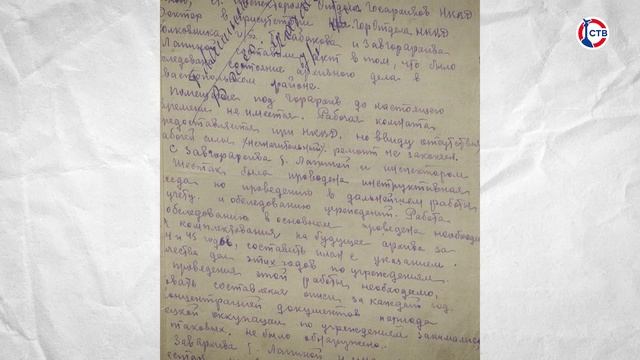 Отдела Госархивов НКВД
в присутствии Нач. Горотдела НКВД
и Завгорархива
Лапиной составлен акт в том, что было
состояние архивного дела в
районе.
Помещение под горархив до настоящего
времени не имеется. Рабочая комната
предоставляется при НКВД, но ввиду отсутствия
рабочей силы ремонт не закончен.
С Завгорархива т. Лапиной и инспектором
Шестак была проведена инструктивная
беседа по проведению в дальнейшем работы
учету и обследованию учреждений. Работа
обследованию в основном проведена необходимо
комплектования на будущее архива за
и 45 годов, составить план с указанием
дел этих годов по учреждениям.
проведения этой работы необходимо,
составления описи за каждый год.
концентрацией документов периода
оккупации по учреждениям занимались
таковых не было обнаружено.
Завархива т. Лапиной и
СТВ